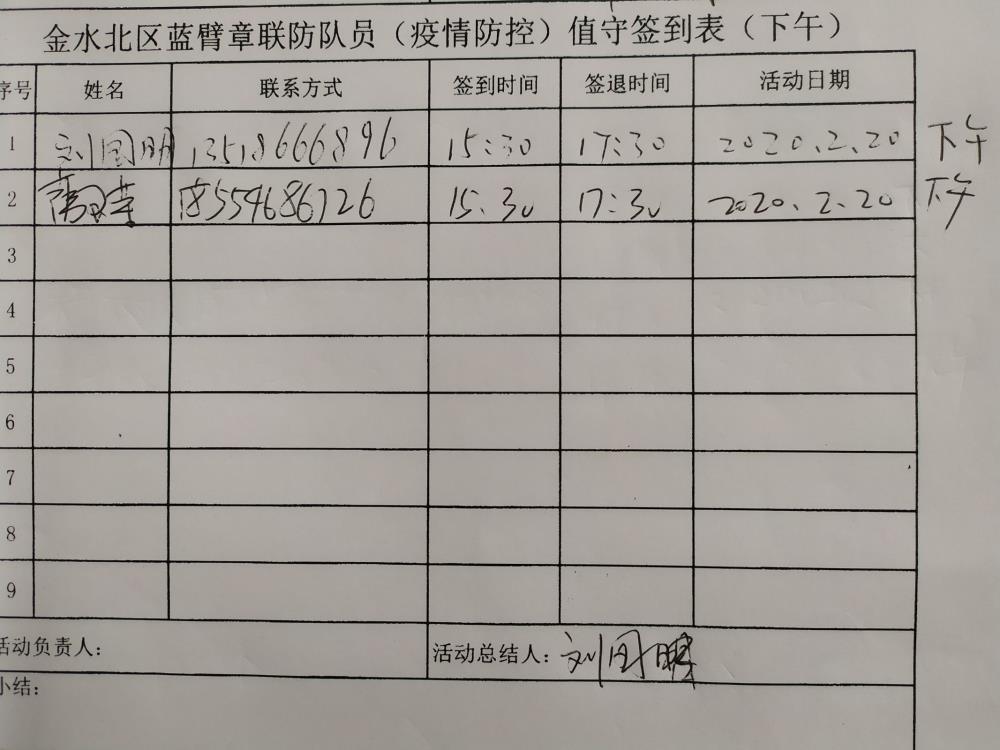 金水北区蓝臂章联防队员（疫情防控）值守签到表（下午）
序号 姓名 联系方式 签到时间 签退时间 活动日期
1 刘国明 13518666896 15:30 17:30 2020.2.20 下午
2 18554686726 15:30 17:30 2020.2.20 下午
3
4
5
6
7
8
9
活动负责人： 活动总结人：刘国明
小结：